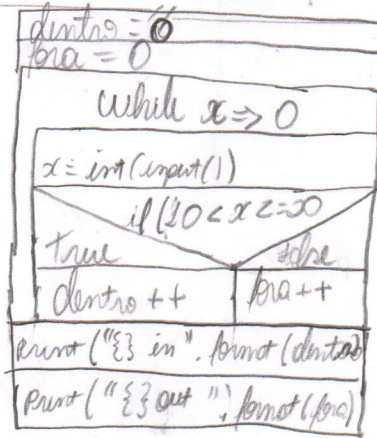 dentro = 0
fora = 0
while x => 0
x = int(input())
if (10 < x <= 20
true
false
dentro ++
fora ++
print ("{} in". format (dentro)
print ("{} out ") format (fora)